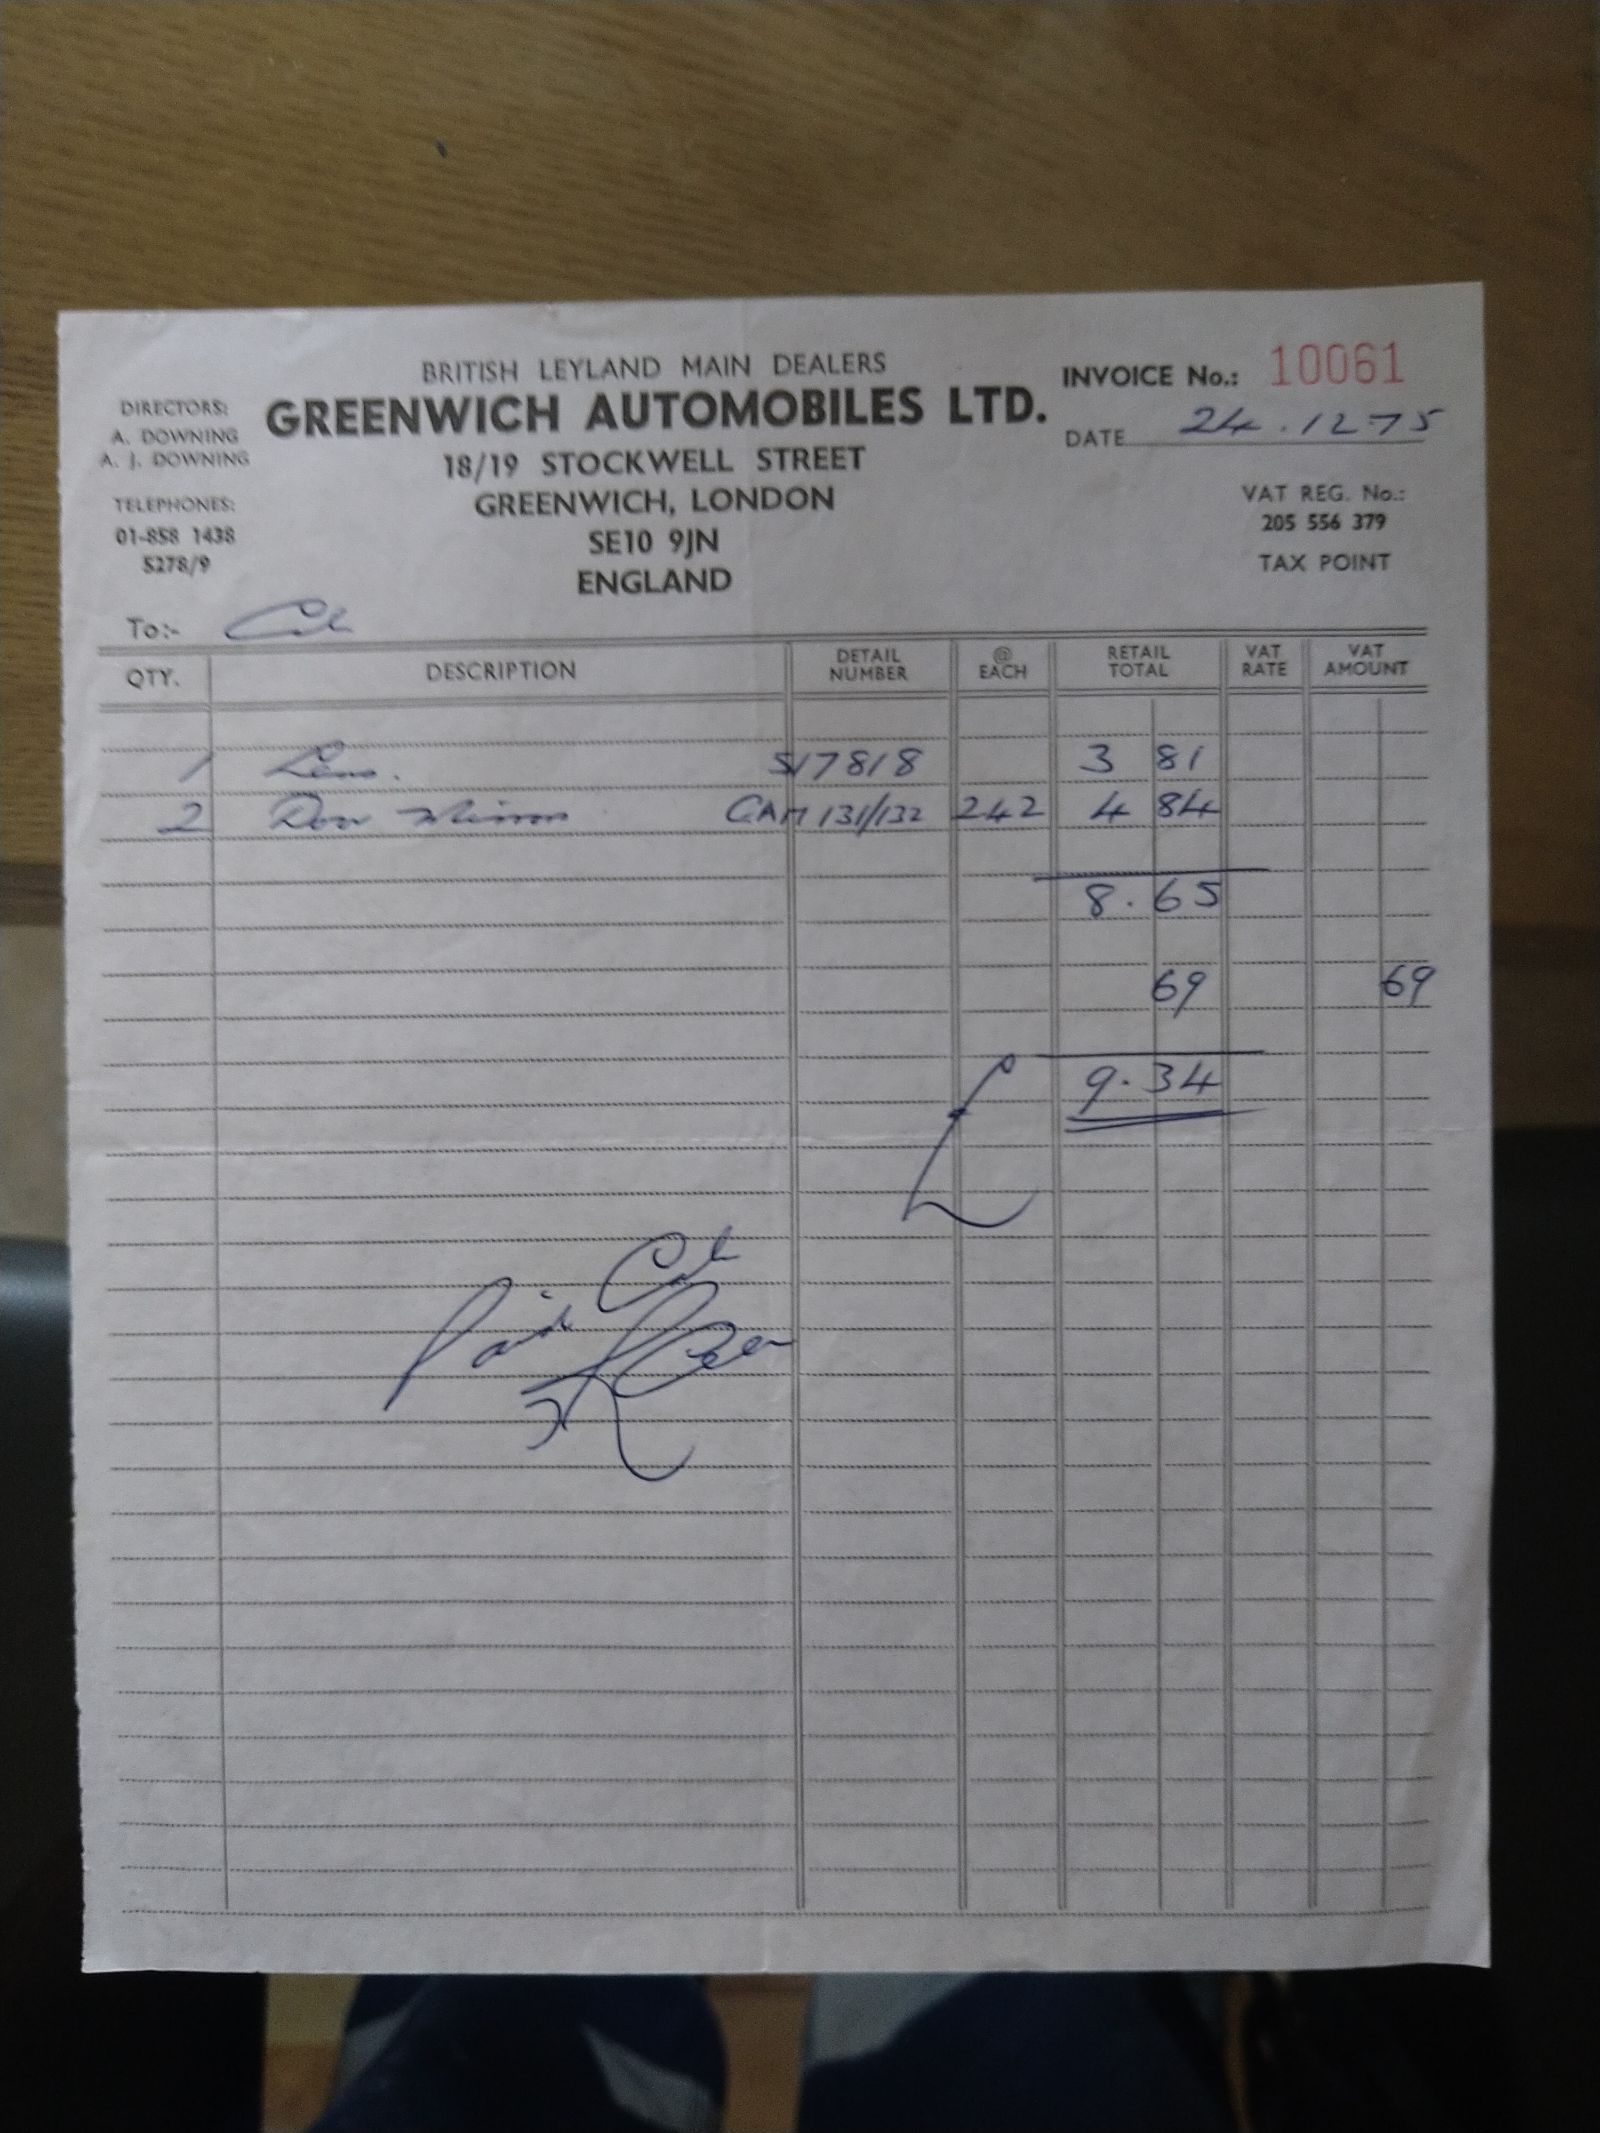 BRITISH LEYLAND MAIN DEALERS
GREENWICH AUTOMOBILES LTD.
18/19 STOCKWELL STREET
GREENWICH, LONDON
SE10 9JN
ENGLAND
DIRECTORS:
A. DOWNING
A. J. DOWNING
TELEPHONES:
01-858 1438
5278/9
INVOICE No.: 10061
DATE 24.12-75
VAT REG. No.:
205 556 379
TAX POINT
To:-
QTY. DESCRIPTION DETAIL NUMBER @ EACH RETAIL TOTAL VAT RATE VAT AMOUNT
1 Lens. 517818 3 81
2 Door Mirrors GAM 131/132 242 4 84
8.65
69 69
£ 9.34
Paid